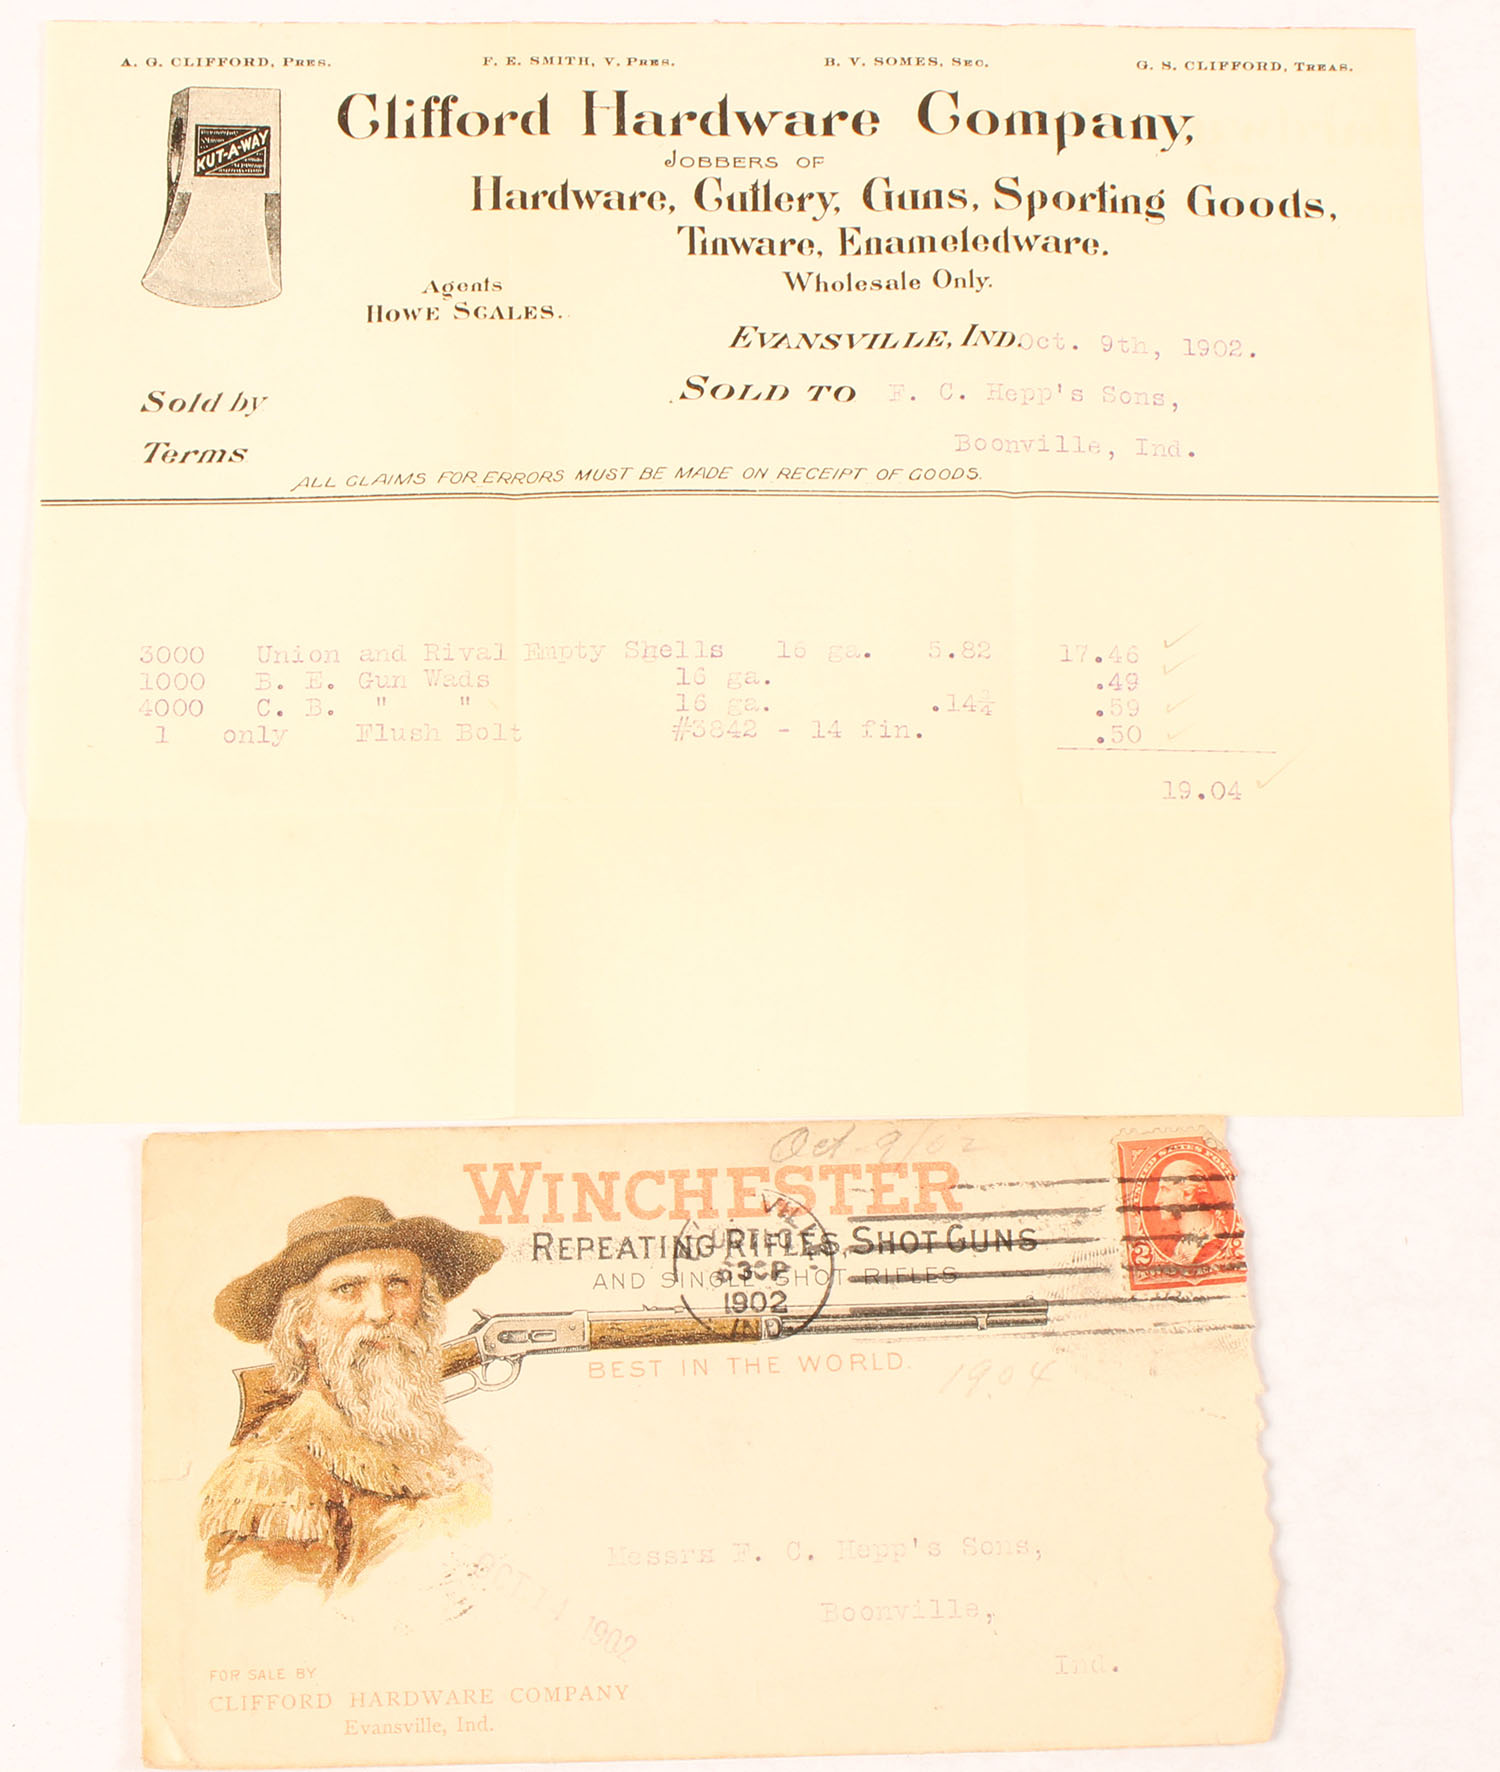 A. G. CLIFFORD, PRES. F. E. SMITH, V. PRES. B. V. SOMES, SEC. G. S. CLIFFORD, TREAS.
KUT-A-WAY
Clifford Hardware Company,
JOBBERS OF
Hardware, Cutlery, Guns, Sporting Goods,
Tinware, Enameledware.
Agents
HOWE SCALES.
Wholesale Only.
EVANSVILLE, IND. Oct. 9th, 1902.
Sold by
SOLD TO F. C. Hepp's Sons,
Terms
Boonville, Ind.
ALL CLAIMS FOR ERRORS MUST BE MADE ON RECEIPT OF GOODS.
3000 Union and Rival Empty Shells 16 ga. 5.82 17.46
1000 B. E. Gun Wads 16 ga. .49
4000 C. B. " " 16 ga. .14¾ .59
1 only Flush Bolt #3842 - 14 fin. .50
19.04
Oct. 9/02
WINCHESTER
REPEATING RIFLES, SHOT GUNS
AND SINGLE SHOT RIFLES
BEST IN THE WORLD.
VILLE
1902
IND
UNITED STATES POST
2 2
19.04
Messrs F. C. Hepp's Sons,
Boonville,
Ind.
OCT 1902
FOR SALE BY
CLIFFORD HARDWARE COMPANY
Evansville, Ind.